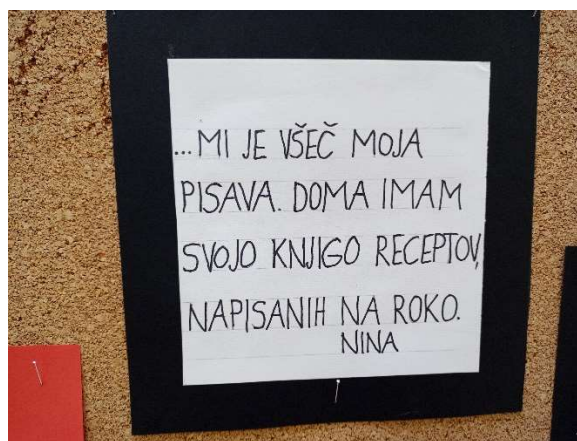 ...MI JE VŠEČ MOJA
PISAVA. DOMA IMAM
SVOJO KNJIGO RECEPTOV,
NAPISANIH NA ROKO.
NINA